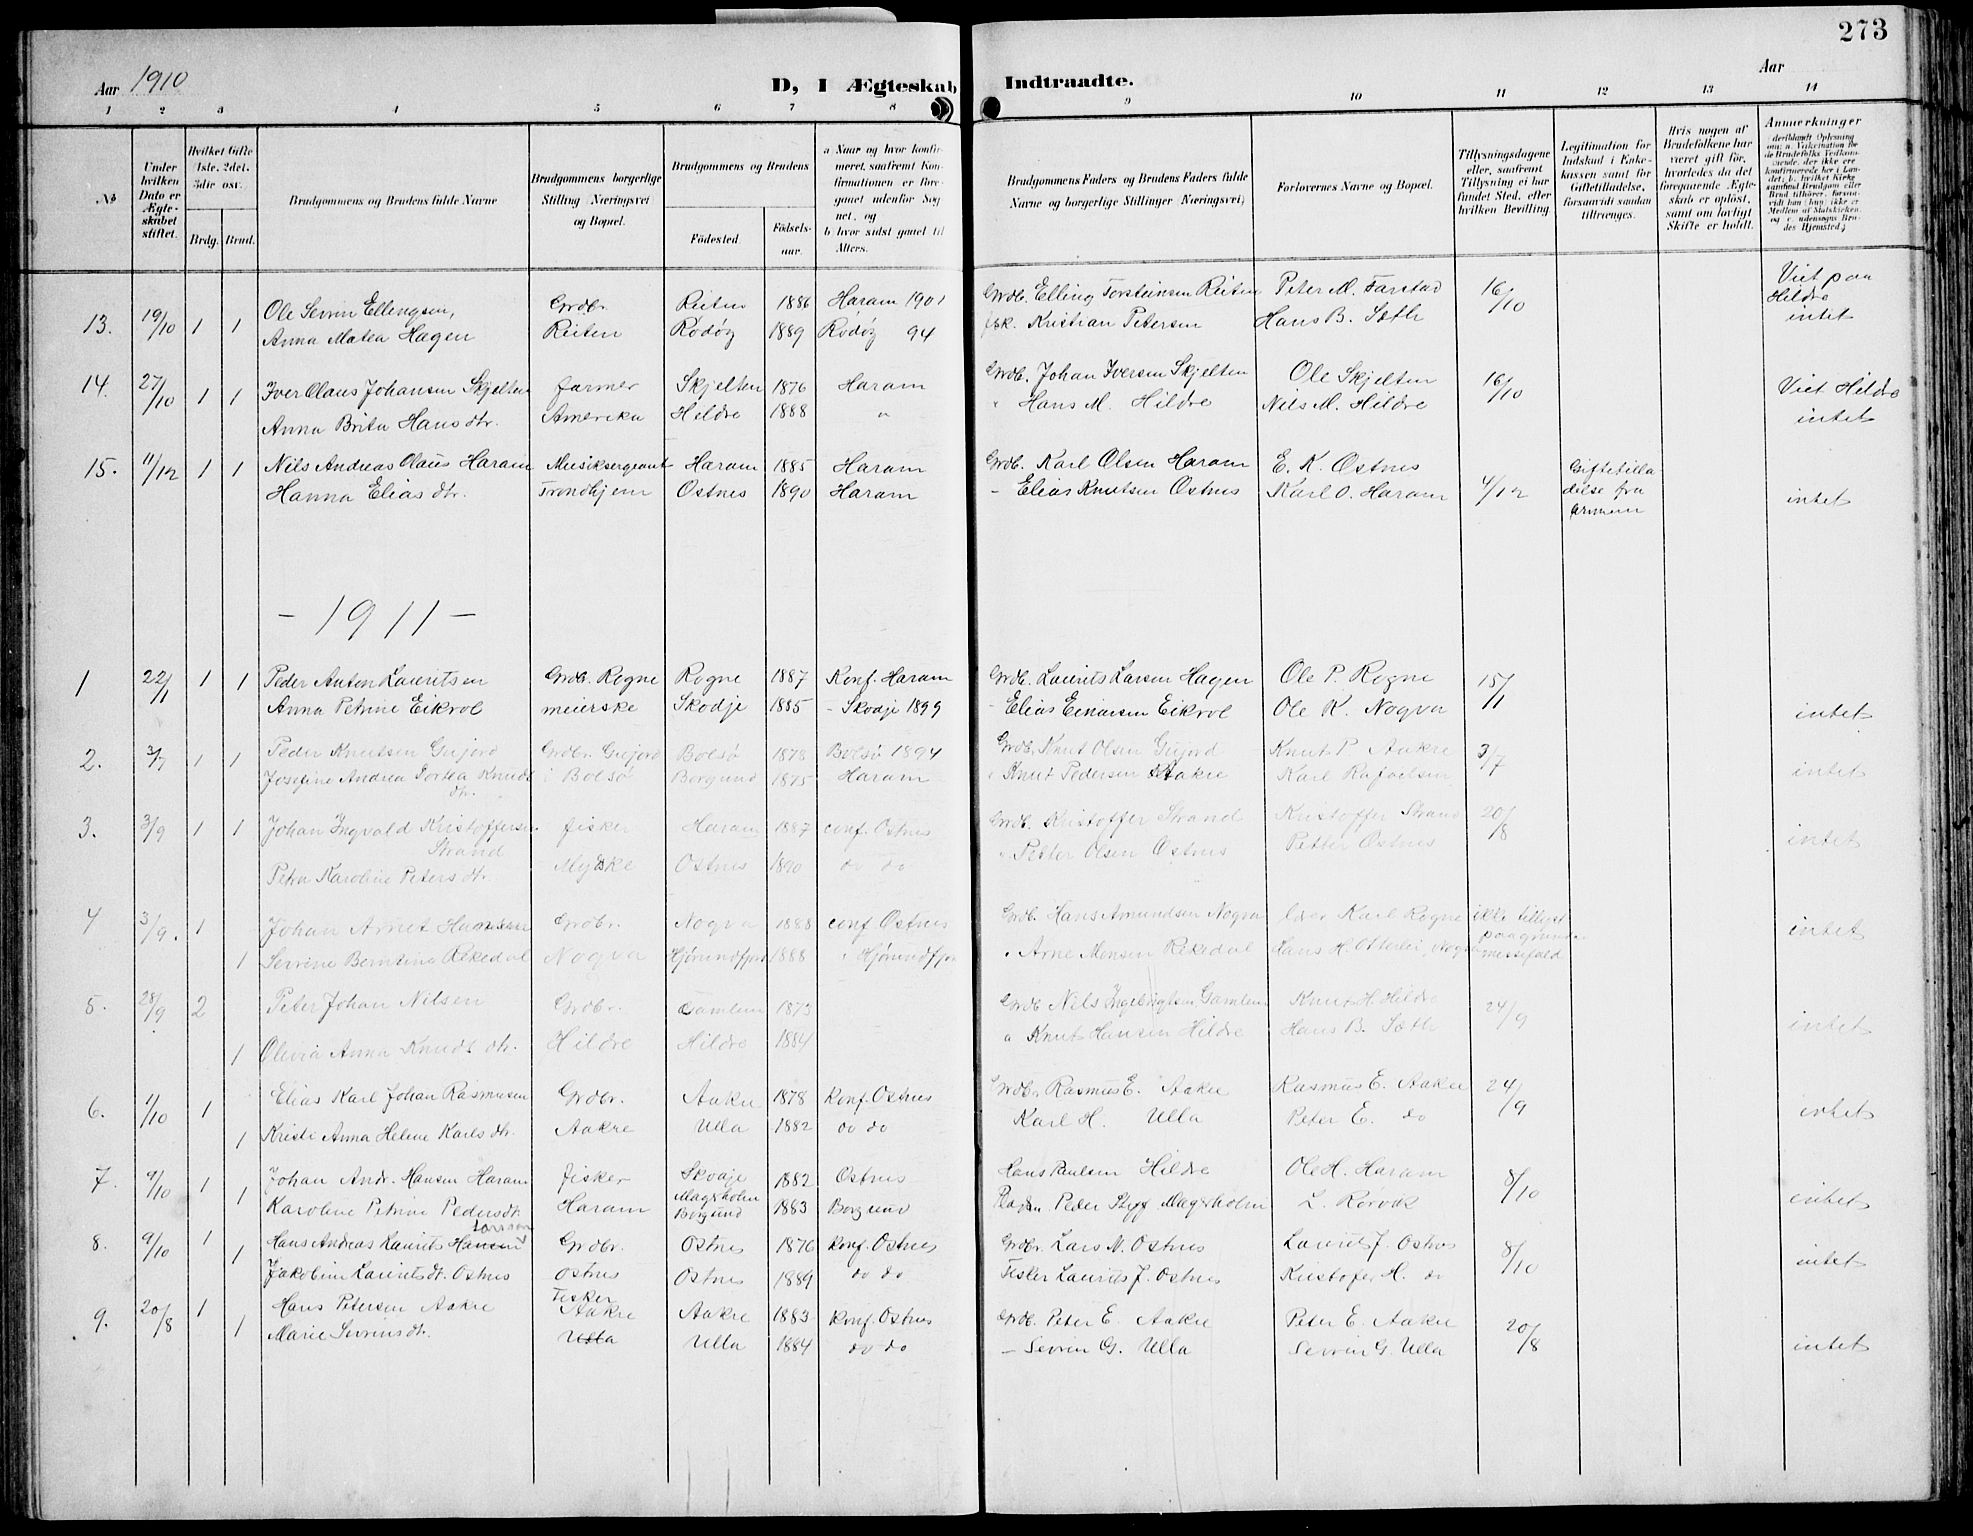 273
Aar 1910
D, I Ægteskab Indtraadte.
Aar
1 2 3 4 5 6 7 8 9 10 11 12 13 14
No
Under hvilken Dato er Ægteskabet stiftet.
Hvilket Gifte 1ste, 2det, 3die osv.
Brdg. Brud.
Brudgommens og Brudens fulde Navne
Brudgommens borgerlige Stilling Næringsvei og Bopæl.
Brudgommens og Brudens
Födested Födselsaar.
a Naar og hvor konfirmeret, saafremt Konfirmationen er foregaaet udenfor Sognet, og b hvor sidst gaaet til Alters.
Brudgommens Faders og Brudens Faders fulde Navne og borgerlige Stillinger Næringsvei;
Forlovernes Navne og Bopæl.
Tillysningsdagene eller, saafremt Tillysning ei har fundet Sted, efter hvilken Bevilling.
Legitimation for Indskud i Enkekassen samt for Giftetilladelse, forsaavidt saadan tiltrænges.
Hvis nogen af Brudefolkene har været gift før, hvorledes da det foregaaende Ægteskab er opløst, samt om lovligt Skifte er holdt.
Anmerkninger
13. 19/10 1 1 Ole Sevrin Ellengsen, Grdbr. Reiten 1886 Haram 1901 Grdb. Elling Torsteinsen Reiten Peter M. Farstad 16/10 Viet paa Hildre
Anna Matea Hagen Reiten Rodøy 1889 Rodøy 94 fsk. Kristian Petersen Hans B. Sæth intet
14. 27/10 1 1 Iver Olaus Johansen Skjelten farmer Skjelten 1876 Haram Grdb. Johan Iversen Skjelten Ole Skjelten 16/10 Viet Hildre
Anna Brita Hansdtr. Amerika Hildre 1888 " " Hans M. Hildre Nils M. Hildre intet
15. 11/12 1 1 Nils Andreas Olaus Haram Musiksergeant Haram 1885 Haram Grdb. Karl Olsen Haram E. K. Ostnes 4/12 Giftetilla
Hanna Eliasdtr. Trondhjem Ostnes 1890 Haram - Elias Knutsen Ostnes Karl O. Haram delse fra intet
armeen
- 1911 -
1 22/1 1 1 Peder Anton Lauritsen Grdb. Rogne Rogne 1887 Konf. Haram Grdb. Laurits Larsen Hagen Ole P. Rogne 15/1
Anna Petrine Eikrol meierske Skodje 1885 - Skodje 1899 - Elias Einarsen Eikrol Ole K. Nogva intet
2. 3/7 1 1 Peder Knutsen Gujord Grdbr. Gujord Bolsø 1878 Bolsø 1894 Grdb. Knut Olsen Gujord Knut P. Aakre 3/7
Josefine Andrea Dortea Knuds i Bolsø Borgund 1875 - Haram " Knut Pedersen Aakre Karl Rafaelsen intet
dtr.
3. 3/9 1 1 Johan Ingvald Kristoffersen fisker Haram 1887 conf. Ostnes Grdb. Kristoffer Strand Kristoffer Strand 20/8
Strand " Petter Olsen Ostnes Petter Ostnes intet
Petra Karoline Petersdtr. Ostnes 1890 do do
4 3/9. 1 Johan Arnet Hansen Grdbr. Nogva 1888 conf. Ostnes Grdb. Hans Amundsen Nogva Karl Rogne ikke tillyst intet
1 Sevrine Berntine Rekedal Nogva Hjørundfjord 1888 " Hjørundfjord " Arne Monsen Rekedal Hans H. Otterlei, Nogva messefald
5. 28/9 2 Peter Johan Nilsen Grdbr. Gamlem 1873 Grdb. Nils Ingebrigtsen Gamlem Knut H. Hildre 24/9
1 Olivia Anna Knudtdtr. Hildre Hildre 1884 " Knut Hansen Hildre Hans B. Sæth intet
6. 1/10 1 Elias Karl Johan Rasmusen Grdbr. Aakre 1878 Konf. Ostnes Grdb. Rasmus E. Aakre Rasmus E. Aakre 24/9
1 Kristi Anna Helene Karlsdtr. Aakre Ulla 1882 do do Karl H. Ulla Peter E. do intet
7. 9/10 1 Johan Andr. Hansen Haram fisker Skodje 1882 Ostnes Hans Paulsen Hildre Ole H. Haram 8/10
1 Karoline Petrine Pedersdtr. Haram Magerholm Borgund 1883 Borgund Peder Magerholm L. Rørvik intet
Larsen
8. 9/10 1 Hans Andreas Laurits Hansen Grdbr. Ostnes 1876 Konf. Ostnes Grdbr. Lars N. Ostnes Laurits J. Ostnes 8/10
1 Jakobine Lauritsdtr. Ostnes Ostnes Ostnes 1889 do do Fisker Laurits J. Ostnes Kristofer H. do intet
Fisker
9. 20/8 1 Hans Petersen Aakre Aakre Aakre 1883 Konf. Ostnes Grdb. Peter E. Aakre Peter E. Aakre 20/8
1 Marie Sevrinsdtr. Ulla Ulla 1884 do do - Sevrin G. Ulla Sevrin G. Ulla intet